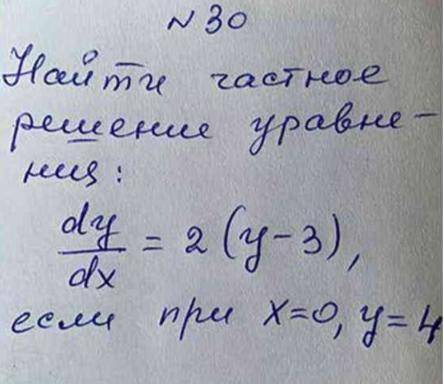 №30
Найти частное
решение уравне-
ния:
dy/dx = 2(y-3),
если при x=0, y=4